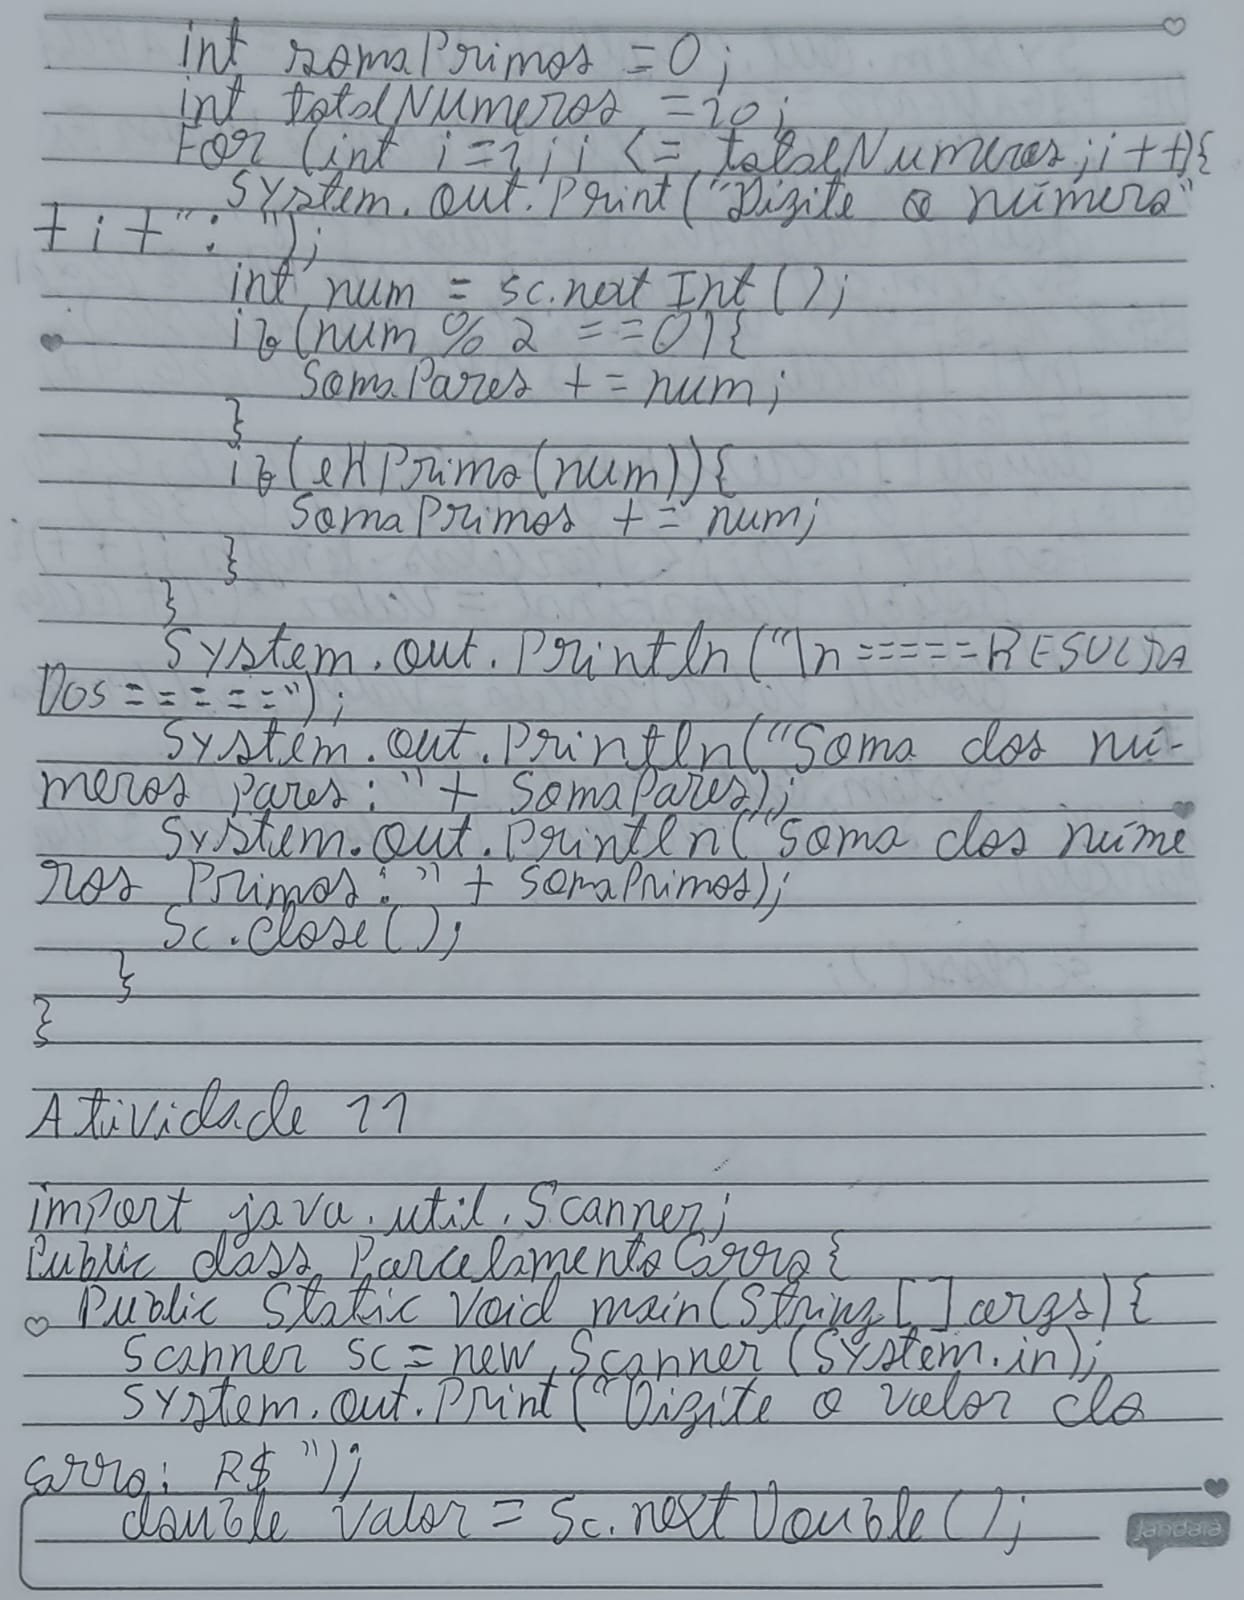 int somaPrimos = 0;
int totalNumeros = 10;
For (int i = 1; i <= totalNumeros; i++){
System.out.Print("Digite o número"
+ i + ": ");
int num = sc.nextInt();
if (num % 2 == 0) {
SomaPares += num;
}
if (eHPrimo(num)){
SomaPrimos += num;
}
}
System.out.Println("\n=====RESULTA
DOS======");
System.out.Println("Soma dos nú-
meros Pares: " + SomaPares);
System.out.Println("Soma dos núme
ros Primos: " + SomaPrimos);
Sc.close();
}
}
Atividade 11
import java.util.Scanner;
Public class ParcelamentoCarro{
Public Static Void main(String[] args) {
Scanner Sc = new Scanner (System.in);
System.out.Print("Digite o valor do
carro: R$ ");
double Valor = Sc.nextDouble();
jandaia